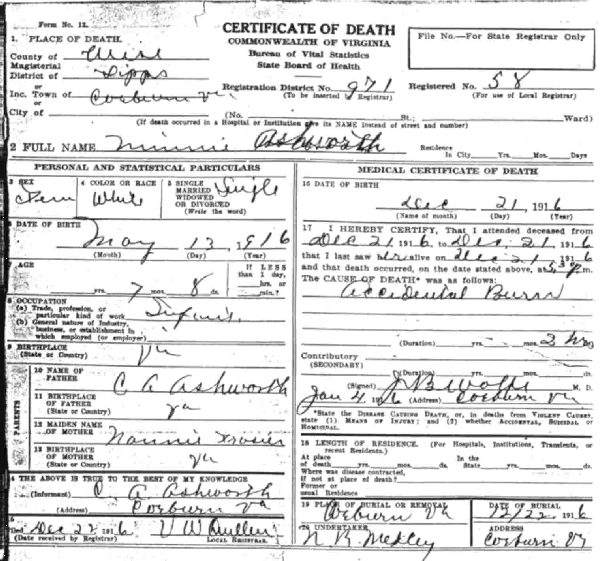 Form No. 12.
CERTIFICATE OF DEATH
COMMONWEALTH OF VIRGINIA
Bureau of Vital Statistics
State Board of Health
File No.—For State Registrar Only
1. PLACE OF DEATH.
County of Wise
Magisterial
District of Lipps
or
Inc. Town of Coeburn Va
or
City of
Registration District No. 971
(To be inserted by Registrar)
Registered No. 58
(For use of Local Registrar)
(No. St.; Ward)
(If death occurred in a Hospital or Institution give its NAME instead of street and number)
2 FULL NAME Minnie Ashworth
Residence
In City, Yrs. Mos. Days.
PERSONAL AND STATISTICAL PARTICULARS
3 SEX
Fem
4 COLOR OR RACE
White
5 SINGLE
MARRIED
WIDOWED
OR DIVORCED
(Write the word)
Single
6 DATE OF BIRTH
May 13, 1916
(Month) (Day) (Year)
7 AGE
yrs. 7 mos. 8 ds.
If LESS
than 1 day,
hrs. or
min.?
8 OCCUPATION
(a) Trade, profession, or
particular kind of work
(b) General nature of Industry,
business, or establishment in
which employed (or employer)
9 BIRTHPLACE
(State or Country) Va
PARENTS
10 NAME OF
FATHER C A Ashworth
11 BIRTHPLACE
OF FATHER
(State or Country) Va
12 MAIDEN NAME
OF MOTHER Nannie
13 BIRTHPLACE
OF MOTHER
(State or Country) Va
14 THE ABOVE IS TRUE TO THE BEST OF MY KNOWLEDGE
(Informant) C. A. Ashworth
(Address) Coeburn Va
15
Filed Dec 22 1916
(Date received by Registrar)
LOCAL REGISTRAR
MEDICAL CERTIFICATE OF DEATH
16 DATE OF BIRTH
Dec 21, 1916
(Name of month) (Day) (Year)
17 I HEREBY CERTIFY, That I attended deceased from
Dec 21 1916 to Dec. 21, 1916
that I last saw her alive on Dec 21 1916
and that death occurred, on the date stated above, at m.
The CAUSE OF DEATH* was as follows:
Accidental Burn
(Duration) yrs. mos. 2 hrs
Contributory
(SECONDARY)
(Duration) yrs. mos. ds.
(Signed) M. D.
Jan 4, 1916 (Address) Coeburn Va
*State the DISEASE CAUSING DEATH, or, in deaths from VIOLENT CAUSES, state (1) MEANS OF INJURY; and (2) whether ACCIDENTAL, SUICIDAL or HOMICIDAL.
18 LENGTH OF RESIDENCE. (For Hospitals, Institutions, Transients, or recent Residents.)
At place
of death yrs. mos. ds.
In the
State yrs. mos. ds.
Where was disease contracted,
if not at place of death?
Former or
usual Residence
19 PLACE OF BURIAL OR REMOVAL
Coeburn Va
DATE OF BURIAL
12/22, 1916
20 UNDERTAKER
N B Medley
ADDRESS
Coeburn Va